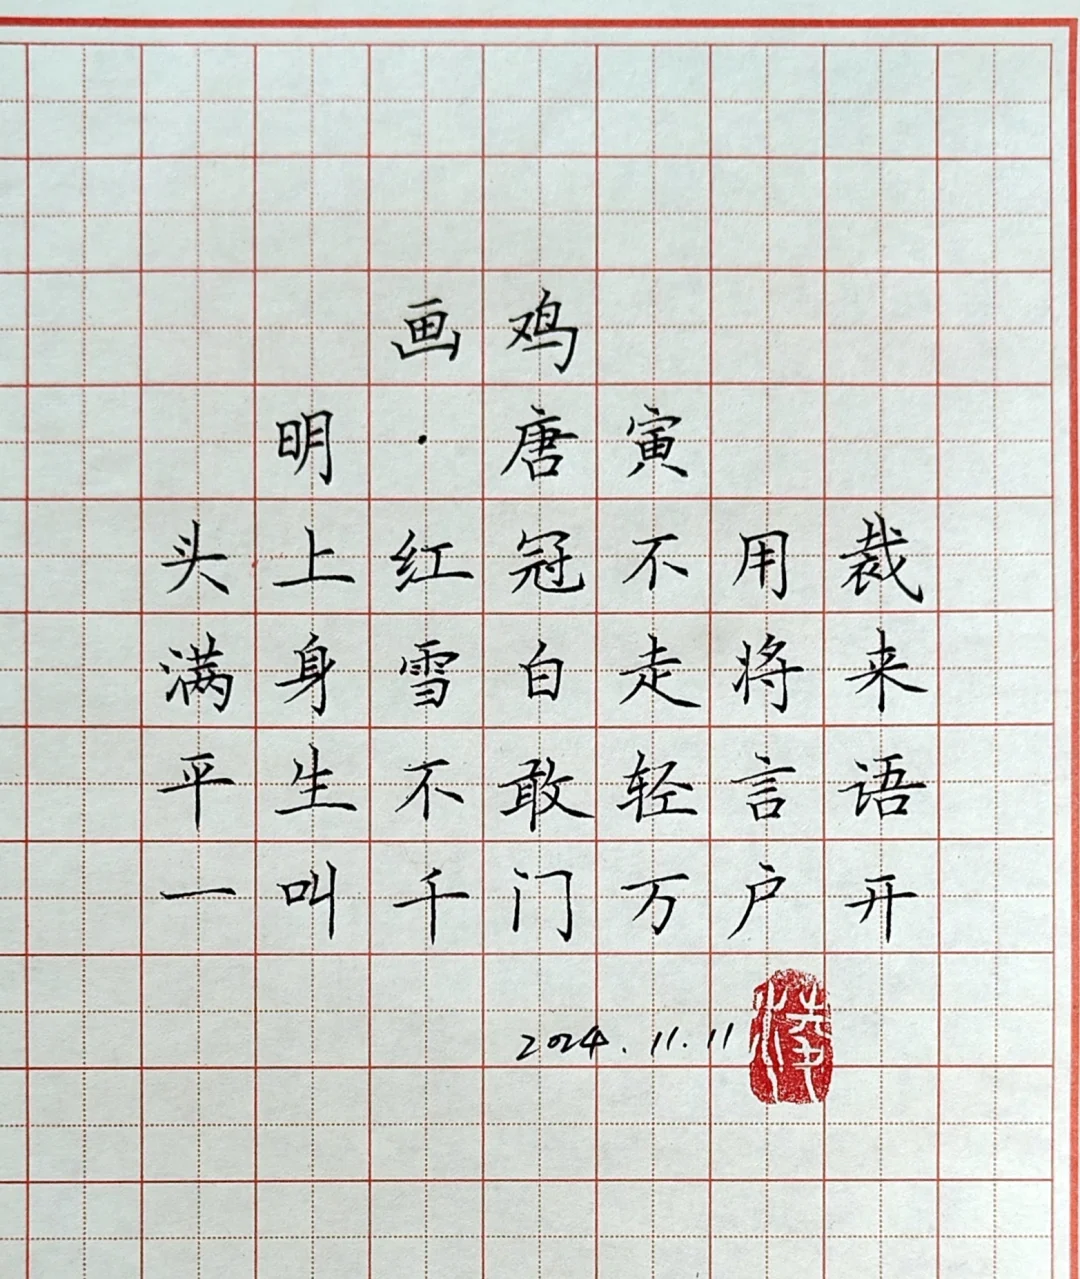 画鸡
明·唐寅
头上红冠不用裁
满身雪白走将来
平生不敢轻言语
一叫千门万户开
2024.11.11